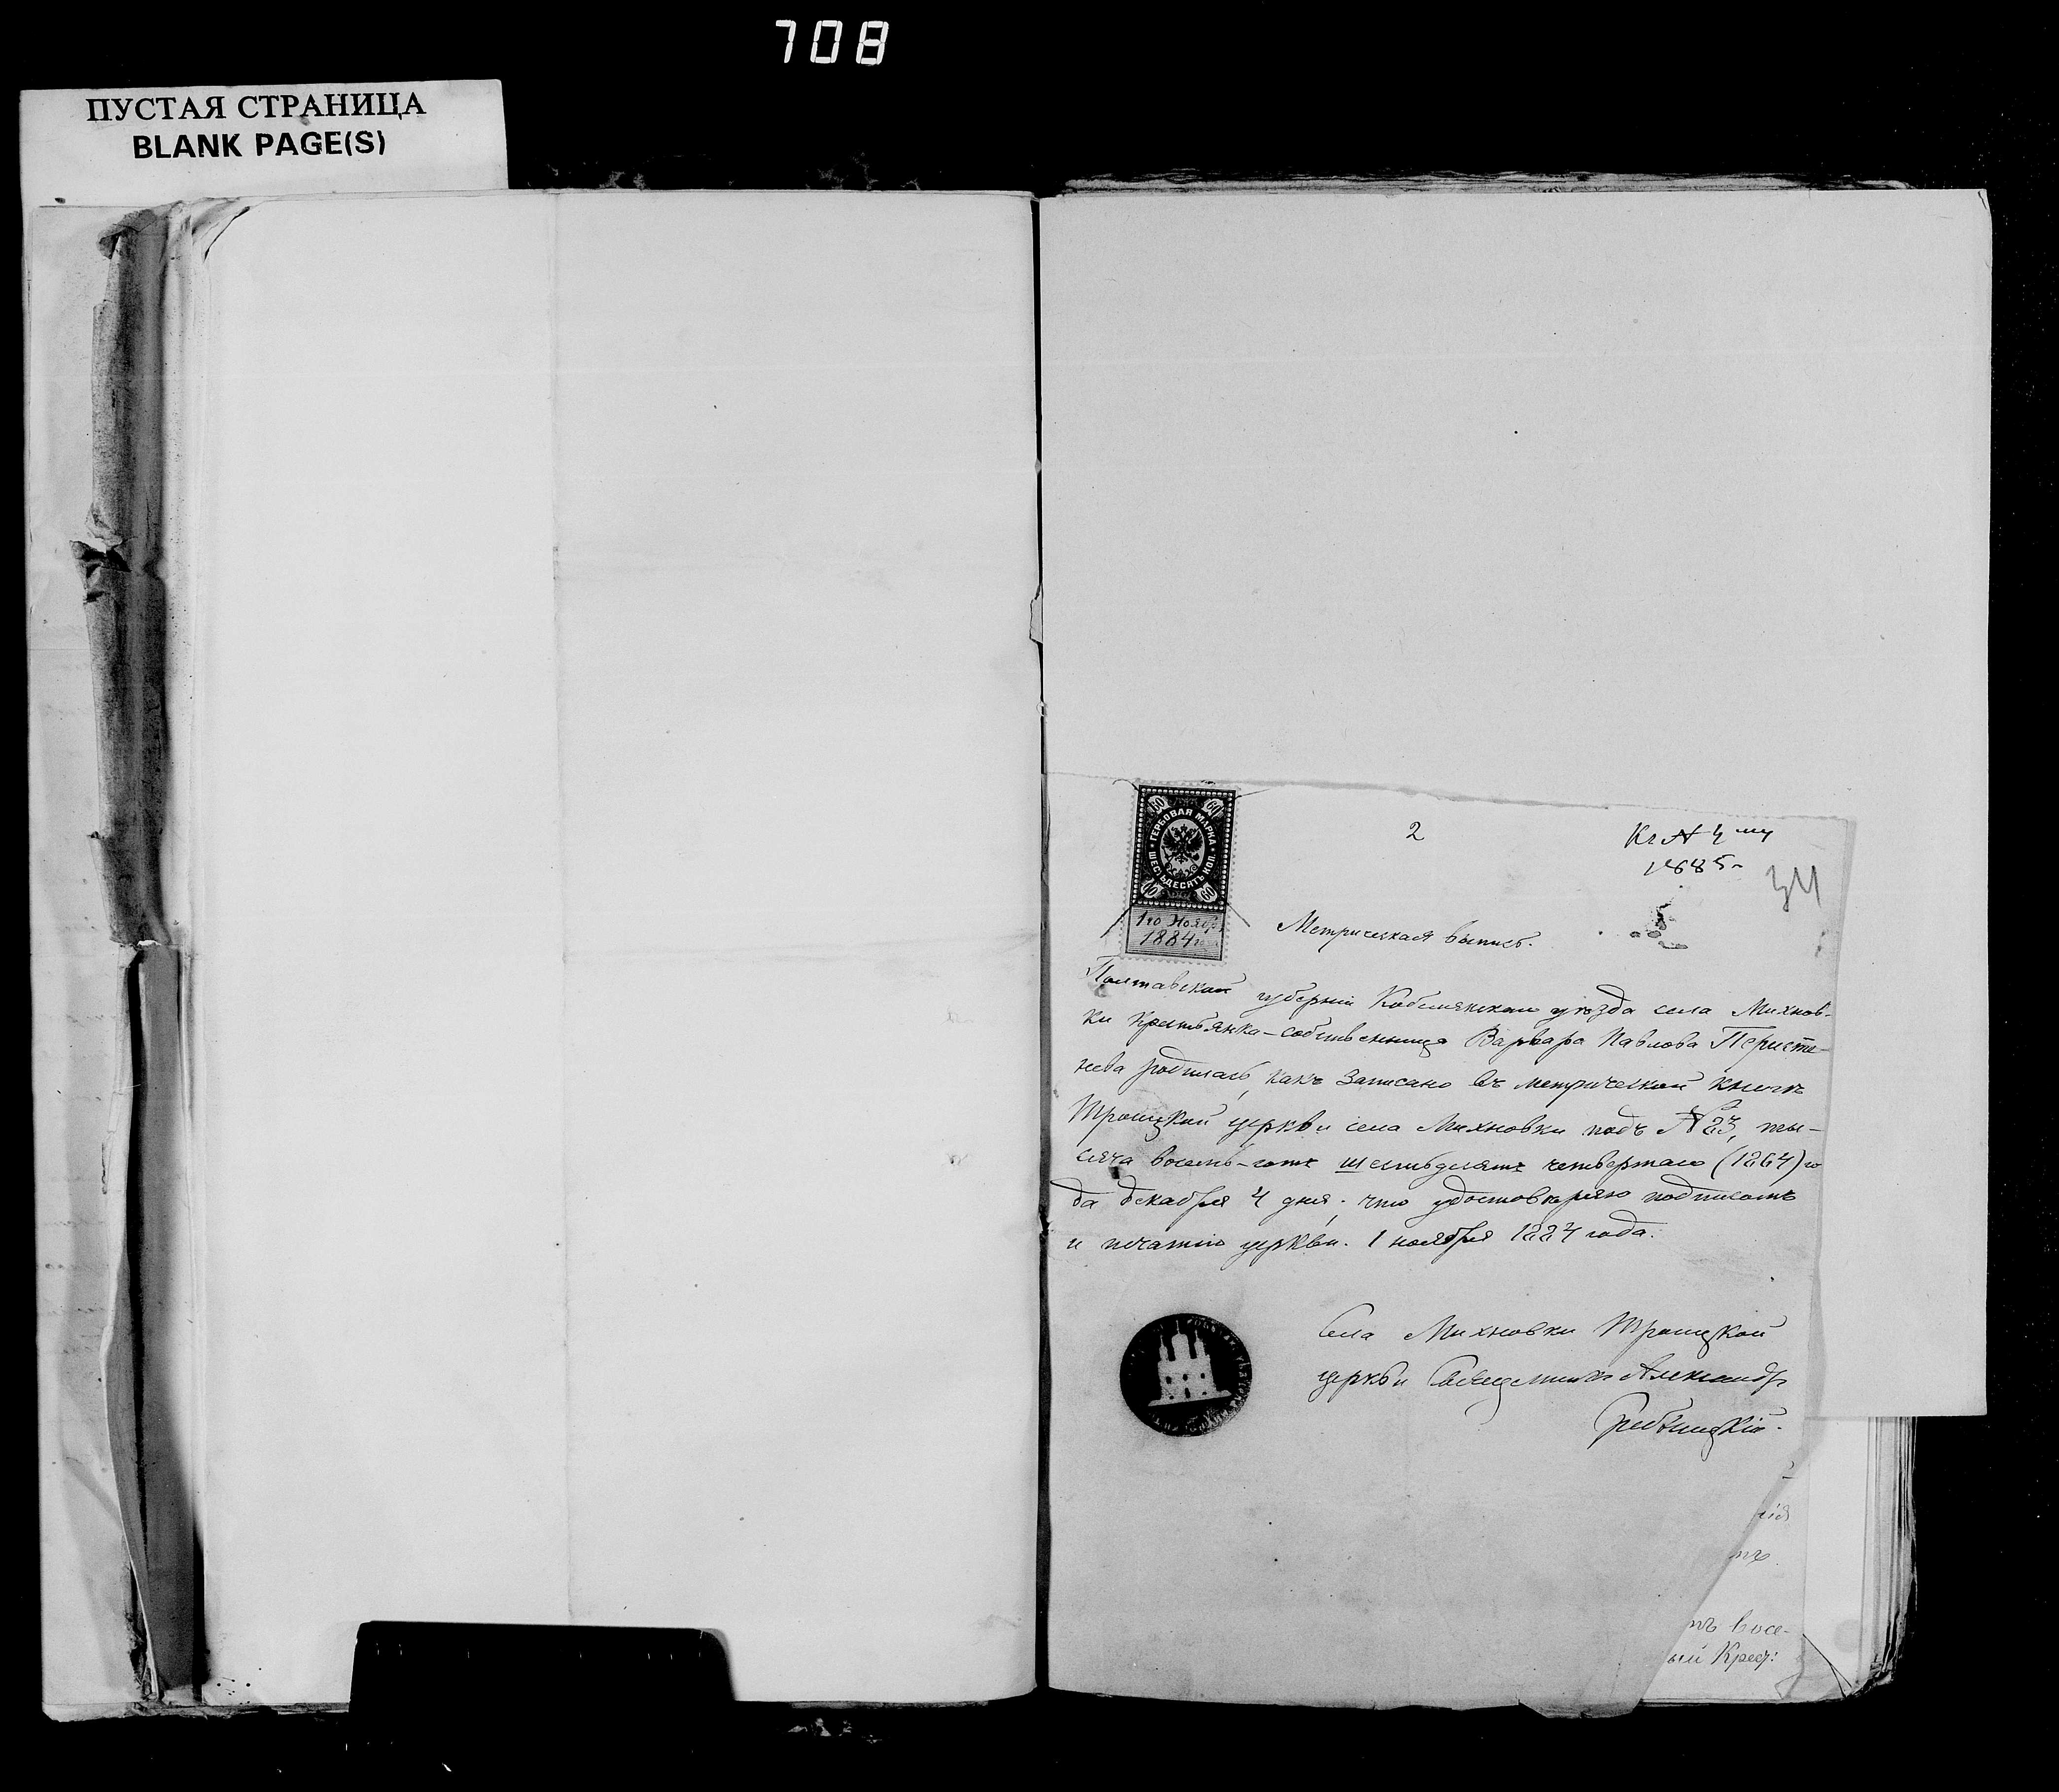 708
ПУСТАЯ СТРАНИЦА
BLANK PAGE(S)
ГЕРБОВАЯ МАРКА
ШЕСТЬДЕСЯТЬ КОП.
60 60
60 60
1го Ноябр.
1884 г.
2
Къ № 4му
1885
34
Метрическая выпись.
Полтавской губерніи Кобелякскаго уѣзда села Михнов-
ки крестьянка-собственница Варвара Павлова Перисте-
нева родилась, какъ записано въ метрической книгѣ
Троицкой церкви села Михновки подъ № 23, ты-
сяча восемь-сотъ шестьдесятъ четвертаго (1864) го
да декабря 4 дня. что удостовѣряю подписомъ
и печатью церкви. 1 ноября 1884 года.
Села Михновки Троицкой
церкви Священникъ Александръ
Гребницкій.
нія
тъ
тъ восе-
ый Крест: